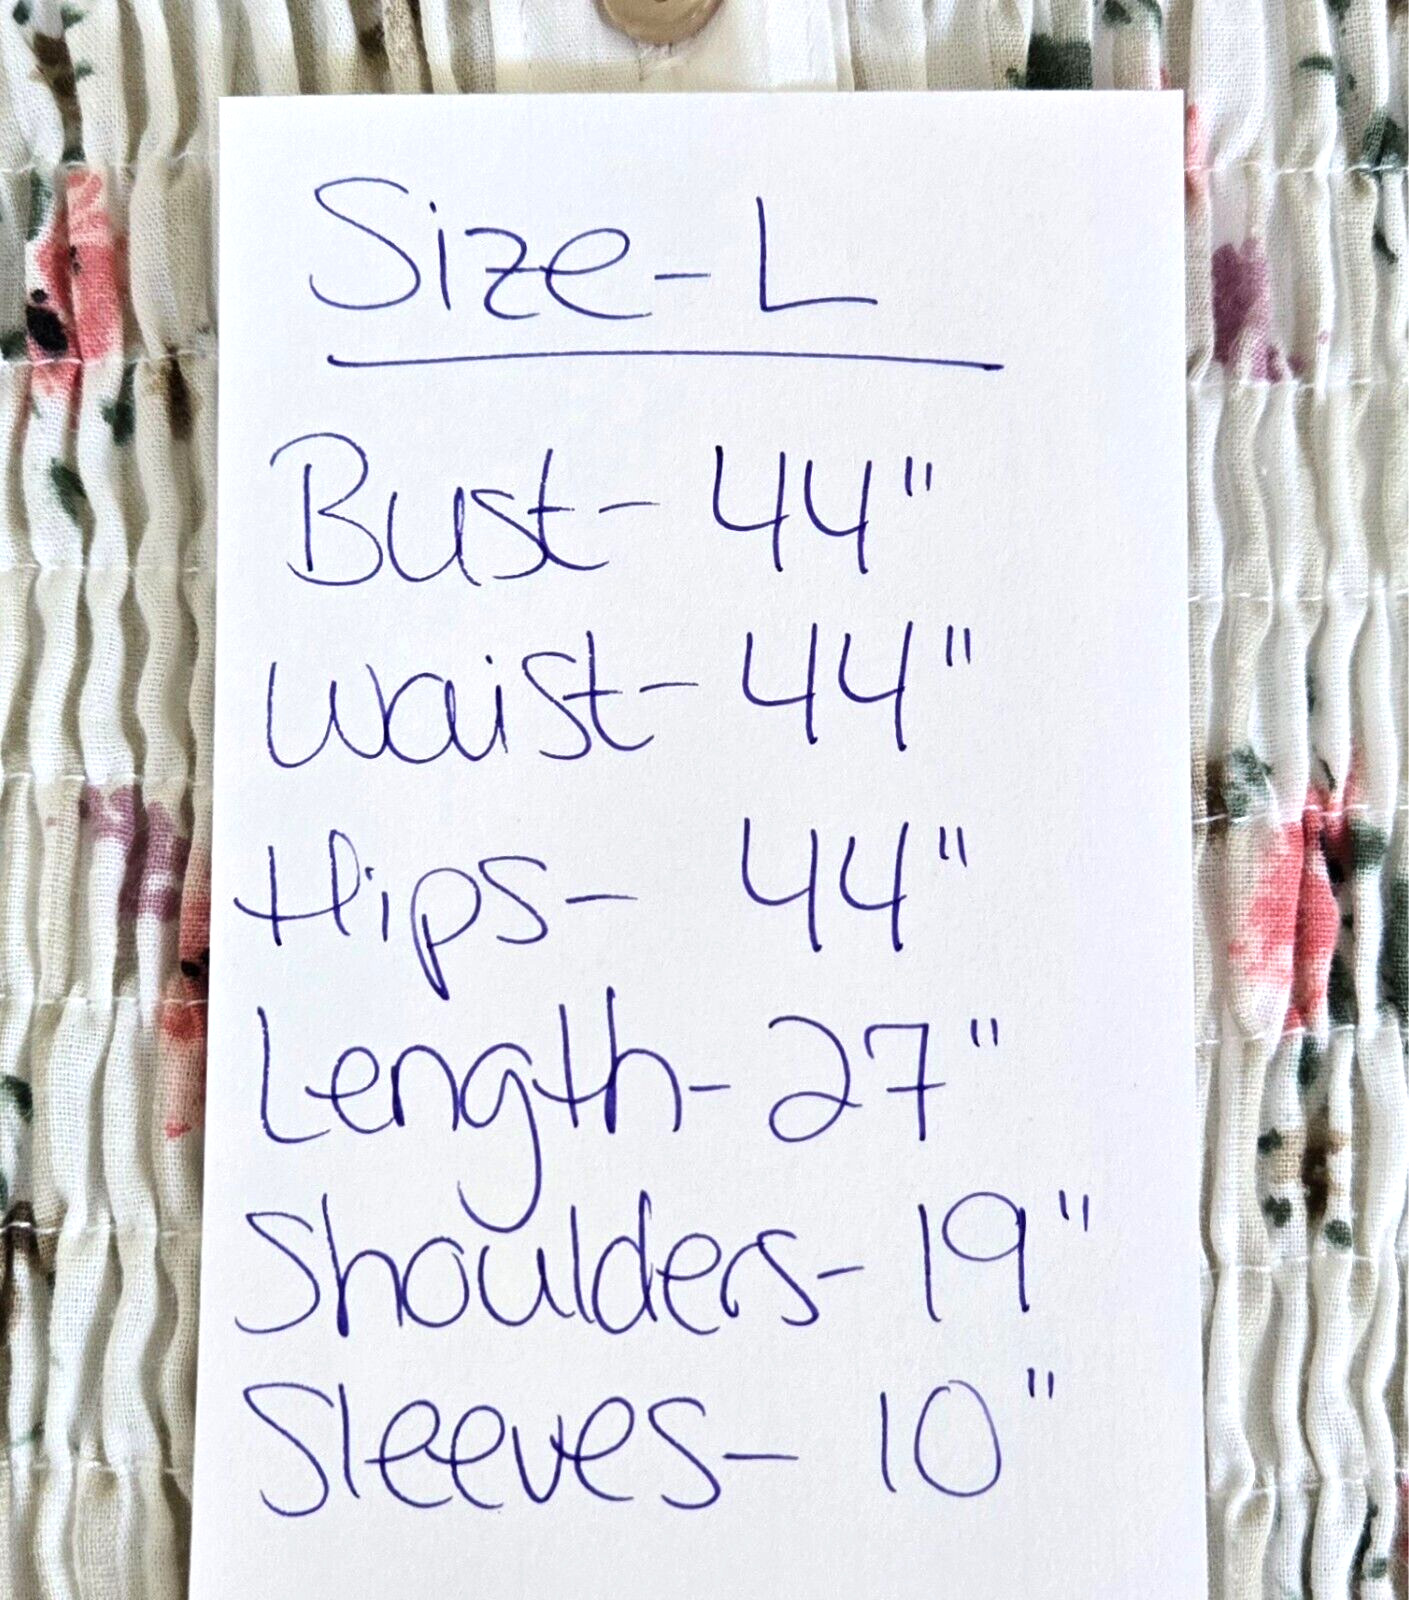 Size - L
Bust - 44"
Waist - 44"
Hips - 44"
Length - 27"
Shoulders - 19"
Sleeves - 10"